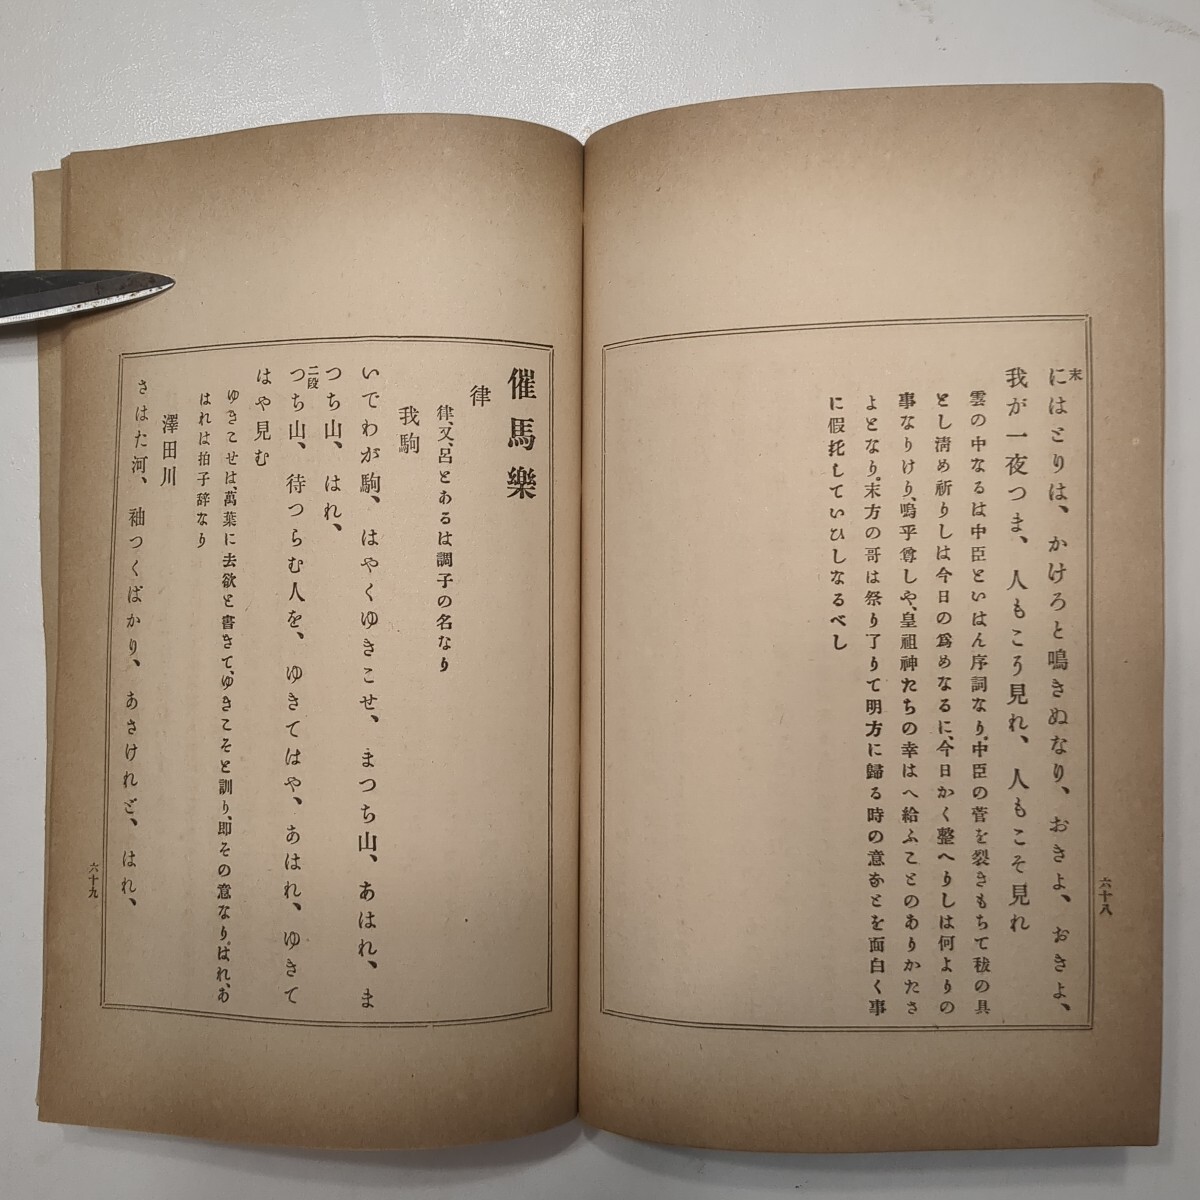 末
にはとりは、かけろと鳴きぬなり、おきよ、おきよ、
我が一夜つま、人もこう見れ、人もこそ見れ
雲の中なるは中臣といはん序詞なり。中臣の菅を裂きもちて秡の具
とし淸め祈りしは今日の爲めなるに、今日かく整へりしは何よりの
事なりけり、嗚乎尊しや、皇祖神たちの幸はへ給ふことのありかたさ
よとなり。末方の哥は祭り了りて明方に歸る時の意なとを面白く事
に假托していひしなるべし
六十八
催馬樂
律
律、又、呂とあるは調子の名なり
我駒
いでわが駒、はやくゆきこせ、まつち山、あはれ、ま
つち山、はれ、
二段
つち山、待つらむ人を、ゆきてはや、あはれ、ゆきて
はや見む
ゆきこせは、萬葉に去欲と書きて、ゆきこそと訓り、即その意なり。はれ、あ
はれは拍子辞なり
澤田川
さはた河、袖つくばかり、あさけれど、はれ、
六十九